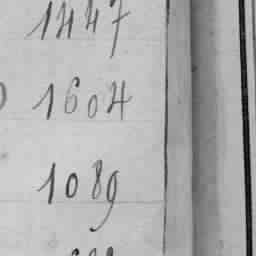 1447
1604
1089